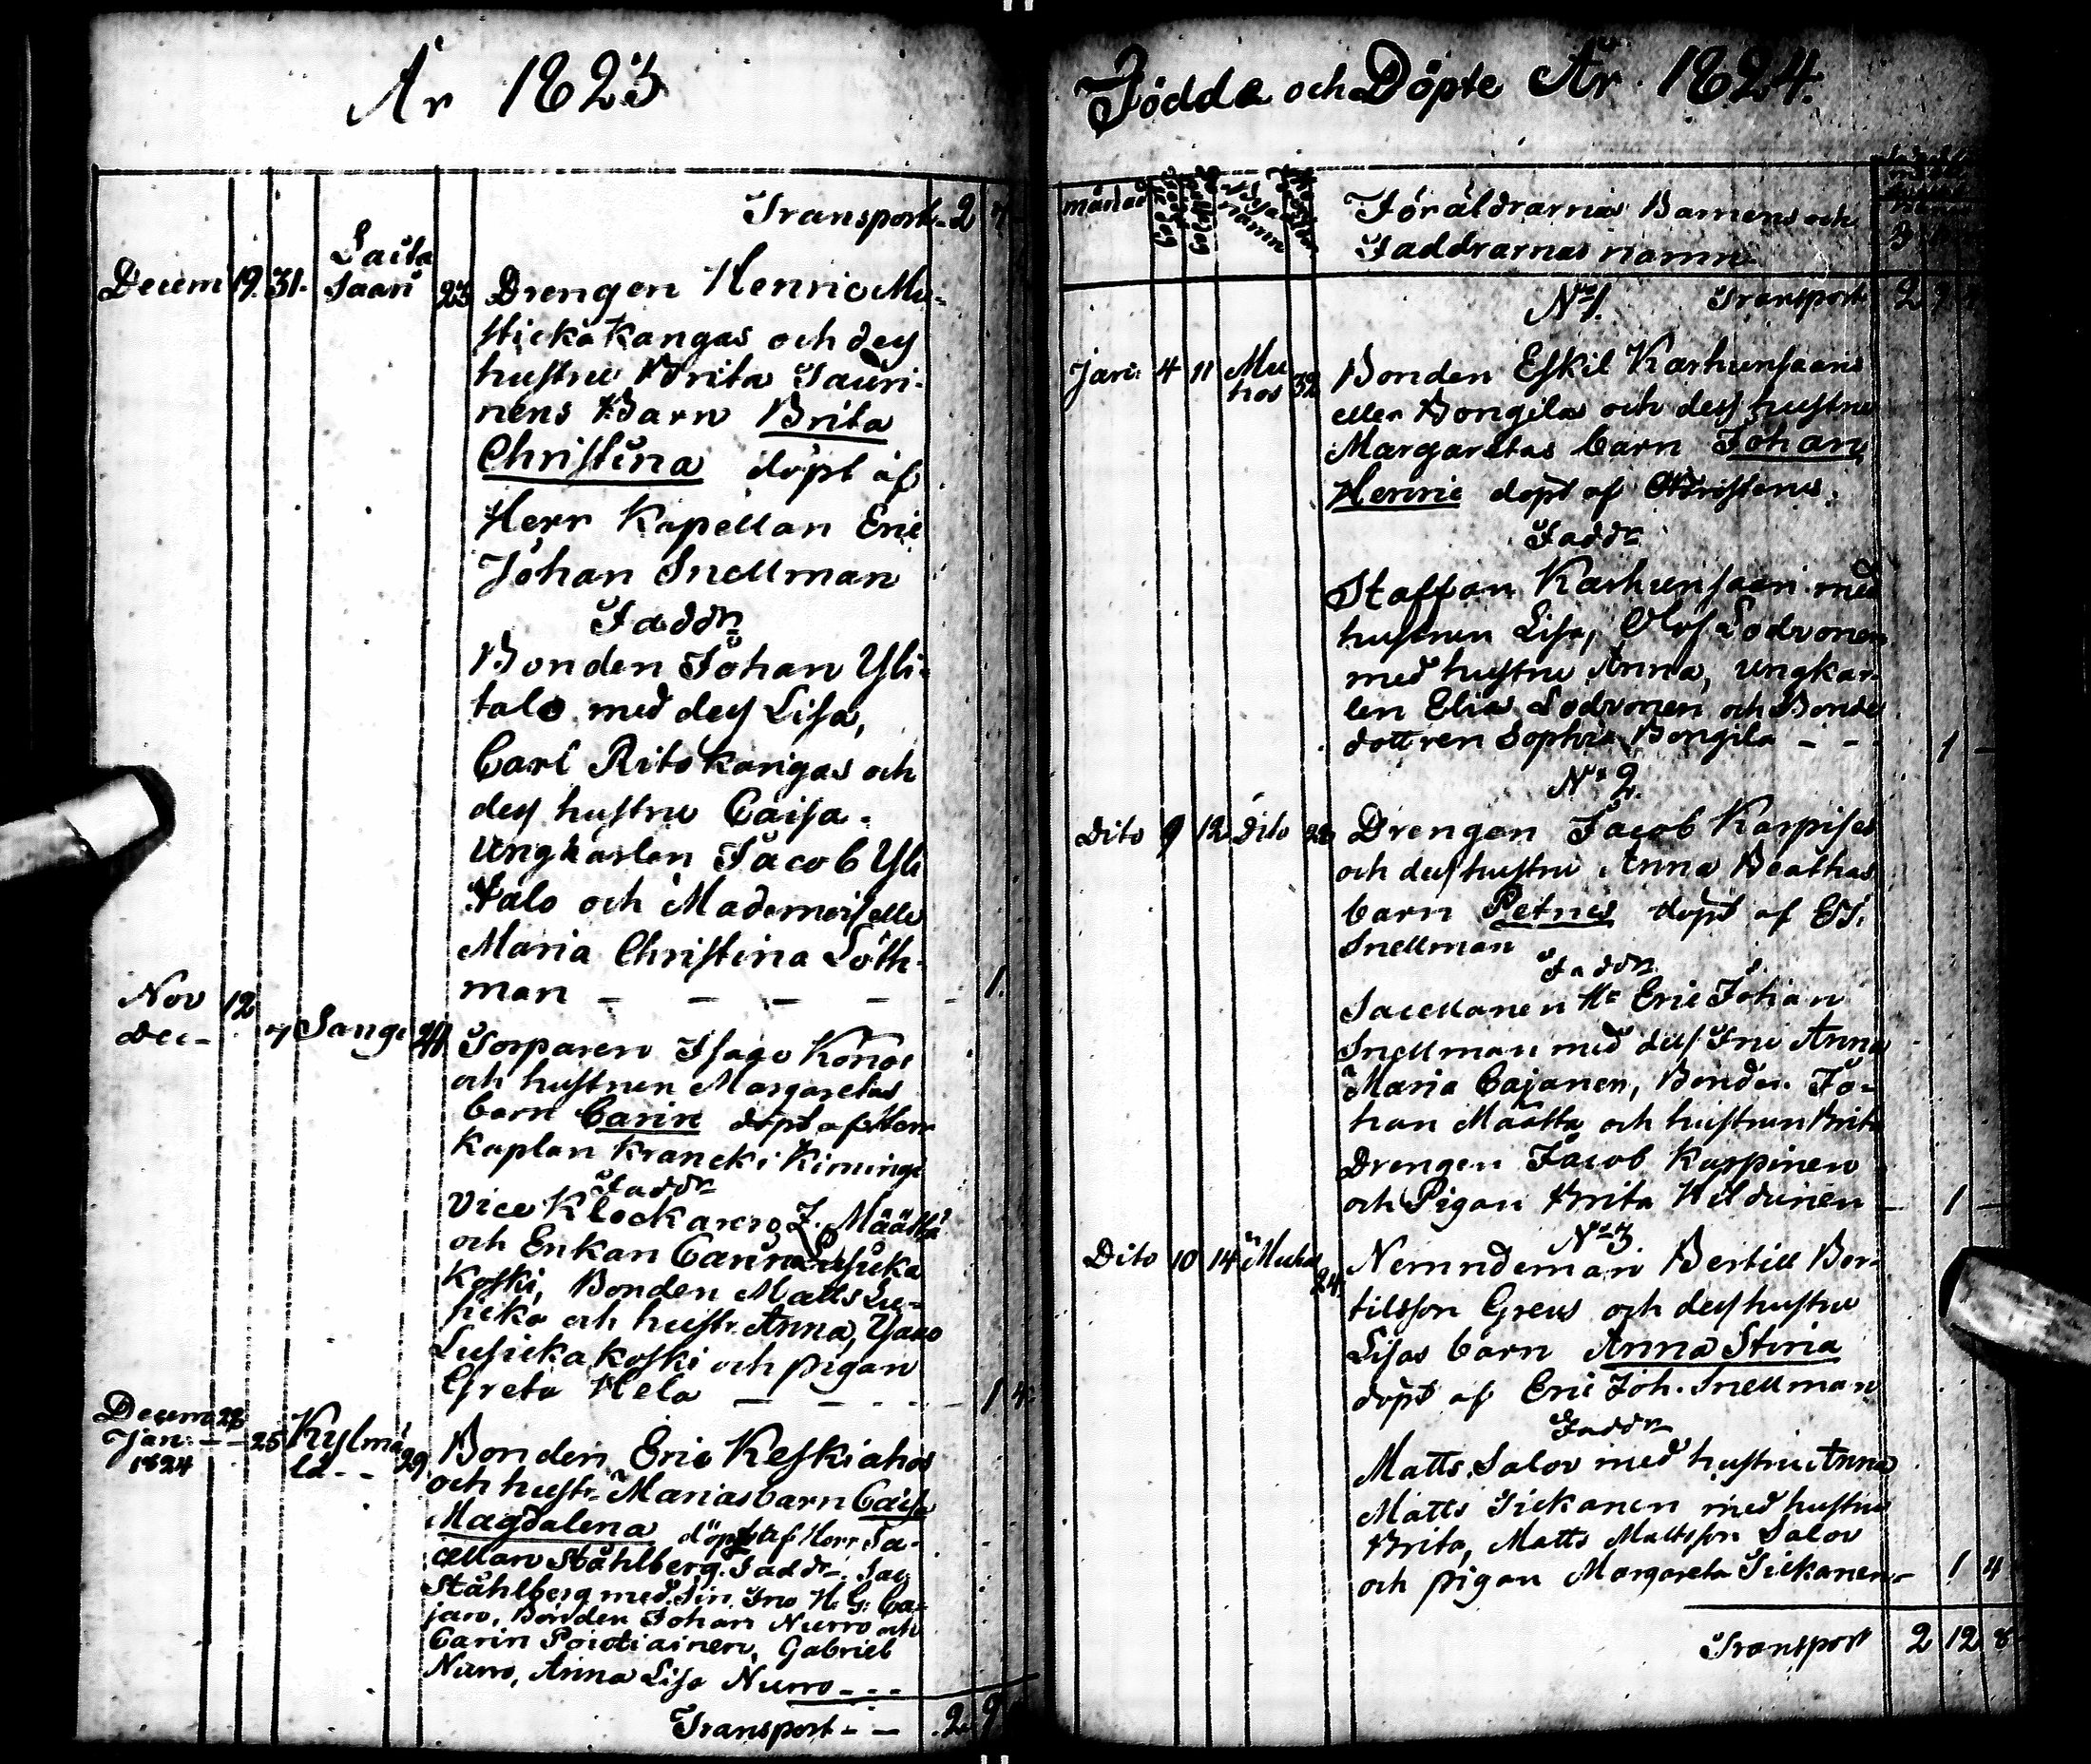 År 1823
Transport - 2 7
Decem 19. 31. Laita
saari 23 Drengen Henric Mu-
stickakangas och dess
hustru Brita Tauri-
nens Barn Brita
Christina döpt af
Herr Kapellan Eric
Johan Snellman
Faddr
Bonden Johan Yli-
talo med dess Lisa,
Carl Ritokangas och
dess hustru Caisa.
Ungkarlen Jacob Yli
talo och Mademoiselle
Maria Christina Löth-
man - - - - - 1.
Nov 12
Dec - 7 Sangi Torparen Isaac Kono
och hustrun Margaretas
barn Carin döpt af Herr
Kaplan Kranck i Kimingi
Faddr
Vice Klockaren J. Määttä
och Enkan Carin Lusicka
koski, Bonden Matts Lu-
sicka och hustr. Anna,
Lusickakoski och pigan
Greta Hela - - - - 1 4
Decem 28
Jan: - - 25 Kylmä
1824 lä - - 29 Bonden Eric Keskiahos
och hustr: Marias barn Caisa
Magdalena döpt af Herr Sa-
cellan Ståhlberg. Faddr: Sac
Ståhlberg med sin Fru H: G: Ca-
jan, Bonden Johan Nurro och
Carin Poiotiainen, Gabriel
Nurro, Anna Lisa Nurro - - -
Transport - - 2. 9
Födda och Döpte År 1824.
månad
namn
Föräldrarnas Barnens och
Faddrarnas namn
No 1. Transport 2 9
Jan: 4 11 Mu
hos 32 Bonden Eskil Karhunsaari
eller Bongilas och dess hustru
Margaretas barn Johan
Henric döpt af
Faddr
Staffan Karhunsaari med
hustrun Lisa, Olof Lodvonen
med hustru Anna, ungkar-
len Elias Lodvonen och Bonde
dottren Sophia Bongila - - 1 -
No 2.
Dito 9 12 Dito 28 Drengen Jacob Karpises
och dess hustru Anna Beathas
barn Petrus döpt af EJ.
Snellman
Faddr
Sacellanen Hr Eric Johan
Snellman med dess Fru Anna
Maria Cajanen, Bonden Jo-
han Määttä och hustrun Brita
Drengen Jacob Karpinen
och Pigan Brita Hildunen - 1 -
No 3.
Dito 10 14 Muhos 24 Nemndeman Bertill Ber-
tilsson Greus och dess hustru
Lisas barn Anna Stina
döpt af Eric Joh. Snellman
Faddr
Matts Salov med hustru Anna
Matts Tickanen med hustru
Brita, Matts Mattsson Salov
och pigan Margareta Tickanen - 1 4
Transport 2 12 8